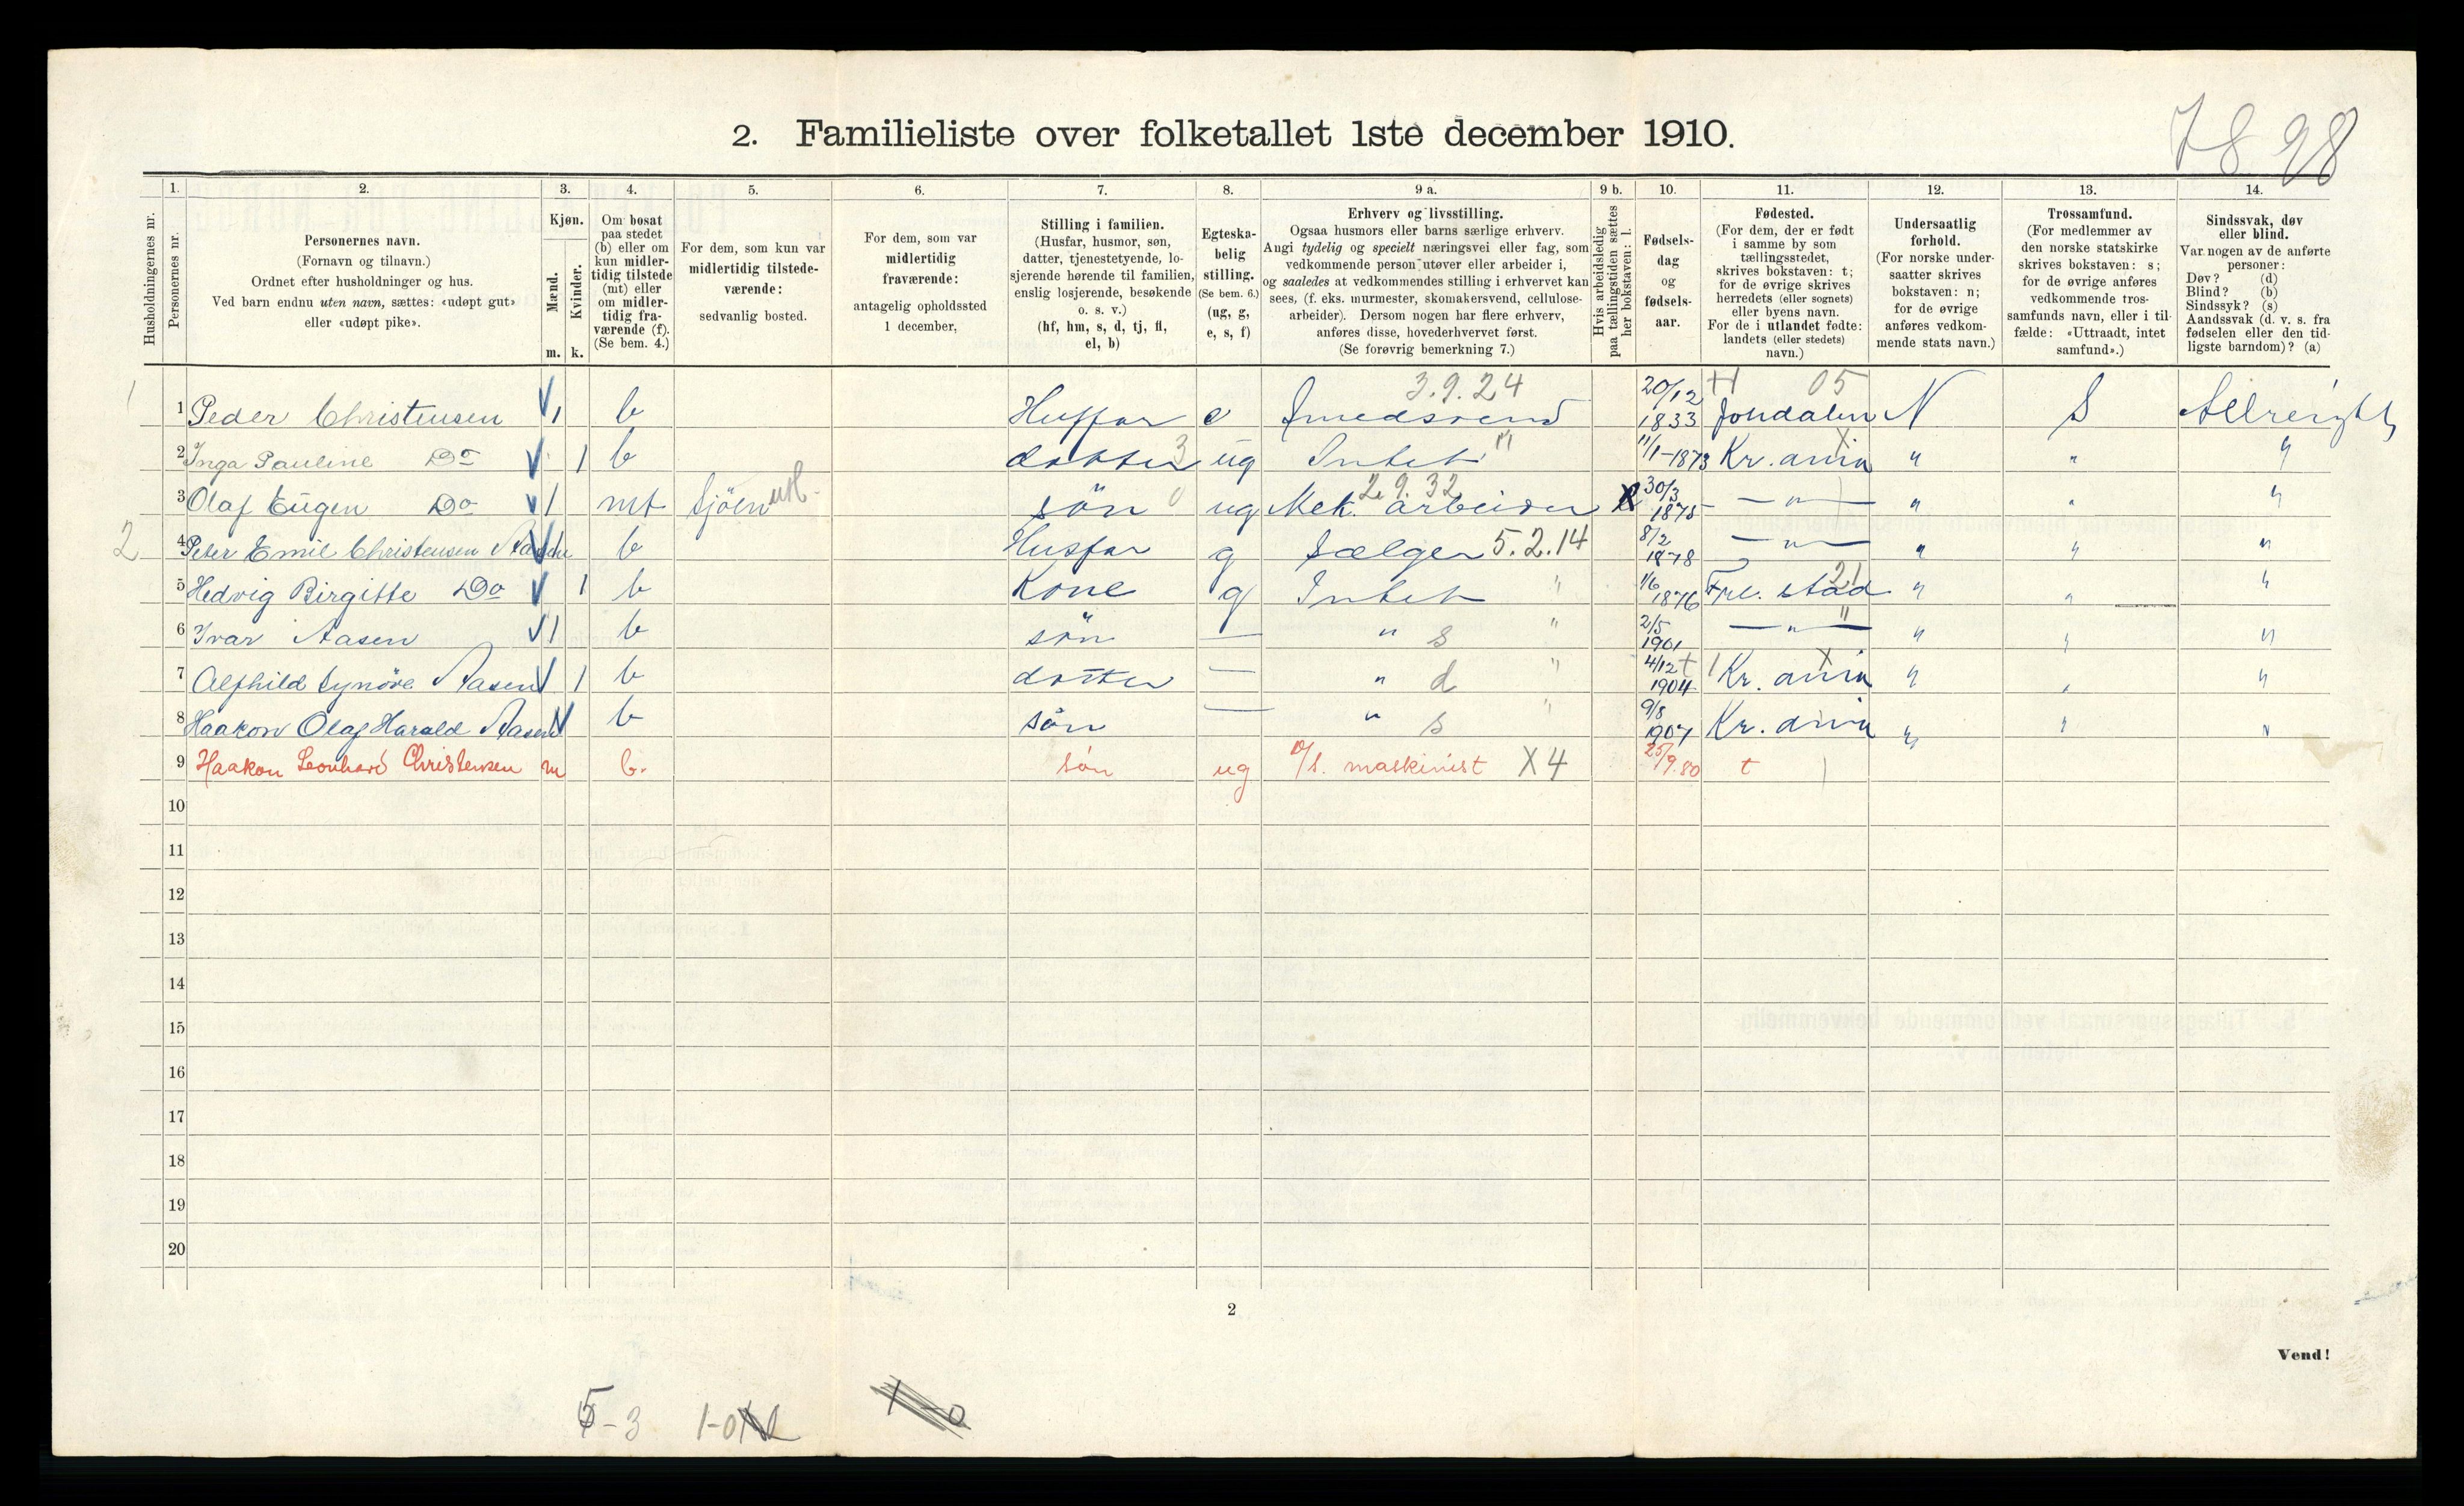 7898
2. Familieliste over folketallet 1ste december 1910.
1. 2. 3. 4. 5. 6. 7. 8. 9 a. 9 b. 10. 11. 12. 13. 14.
Husholdningernes nr.
Personernes nr.
Personernes navn.
(Fornavn og tilnavn.)
Ordnet efter husholdninger og hus.
Ved barn endnu uten navn, sættes: «udøpt gut»
eller «udøpt pike».
Kjøn.
Mænd.
Kvinder.
m. k.
Om bosat
paa stedet
(b) eller om
kun midler-
tidig tilstede
(mt) eller
om midler-
tidig fra-
værende (f).
(Se bem. 4.)
For dem, som kun var
midlertidig tilstede-
værende:
sedvanlig bosted.
For dem, som var
midlertidig
fraværende:
antagelig opholdssted
1 december.
Stilling i familien.
(Husfar, husmor, søn,
datter, tjenestetyende, lo-
sjerende hørende til familien,
enslig losjerende, besøkende
o. s. v.)
(hf, hm, s, d, tj, fl,
el, b)
Egteska-
belig
stilling.
(Se bem. 6.)
(ug, g,
e, s, f)
Erhverv og livsstilling.
Ogsaa husmors eller barns særlige erhverv.
Angi tydelig og specielt næringsvei eller fag, som
vedkommende person utøver eller arbeider i,
og saaledes at vedkommendes stilling i erhvervet kan
sees, (f. eks. murmester, skomakersvend, cellulose-
arbeider). Dersom nogen har flere erhverv,
anføres disse, hovederhvervet først.
(Se forøvrig bemerkning 7.)
Hvis arbeidsledig
paa tællingstiden sættes
her bokstaven: l.
Fødsels-
dag
og
fødsels-
aar.
Fødested.
(For dem, der er født
i samme by som
tællingsstedet,
skrives bokstaven: t;
for de øvrige skrives
herredets (eller sognets)
eller byens navn.
For de i utlandet fødte:
landets (eller stedets)
navn.)
Undersaatlig
forhold.
(For norske under-
saatter skrives
bokstaven: n;
for de øvrige
anføres vedkom-
mende stats navn.)
Trossamfund.
(For medlemmer av
den norske statskirke
skrives bokstaven: s;
for de øvrige anføres
vedkommende tros-
samfunds navn, eller i til-
fælde: «Uttraadt, intet
samfund».)
Sindssvak, døv
eller blind.
Var nogen av de anførte
personer:
Døv? (d)
Blind? (b)
Sindssyk? (s)
Aandssvak (d. v. s. fra
fødselen eller den tid-
ligste barndom)? (a)
1 1 Peder Christensen 1 b Husfar e Smedsvend 3.9.24 20/12 1833 Jondalen 05 N S Allreight
2 Inga Pauline Do 1 b dotter 3 ug Intet " 11/1-1873 Kr.ania X " " "
3 Olaf Eugen Do 1 mt Sjöen utl. sön 0 ug Mek. arbeider 2.9.32 30/3 1875 — " — " " "
2 4 Peter Emil Christensen Aasen b Husfar g Sælger 5.2.14 8/2 1878 — " — " " "
5 Hedvig Birgitte Do 1 b Kone g Intet " 1/6 1876 Fre.stad 21 " " "
6 Ivar Aasen 1 b sön — " s " 2/5 1901 — " — " " " "
7 Alfhild Synöve Aasen 1 b dotter — " d " 4/12 1904 t Kr.ania X " " "
8 Haakon Olaf Harald Aasen b sön — " s " 9/8 1907 Kr.ania " " "
9 Haakon Leonhard Christensen m b. søn ug maskinist X4 25/9.80 t
10
11
12
13
14
15
16
17
18
19
20
2
Vend!
5-3 1-0 1-0